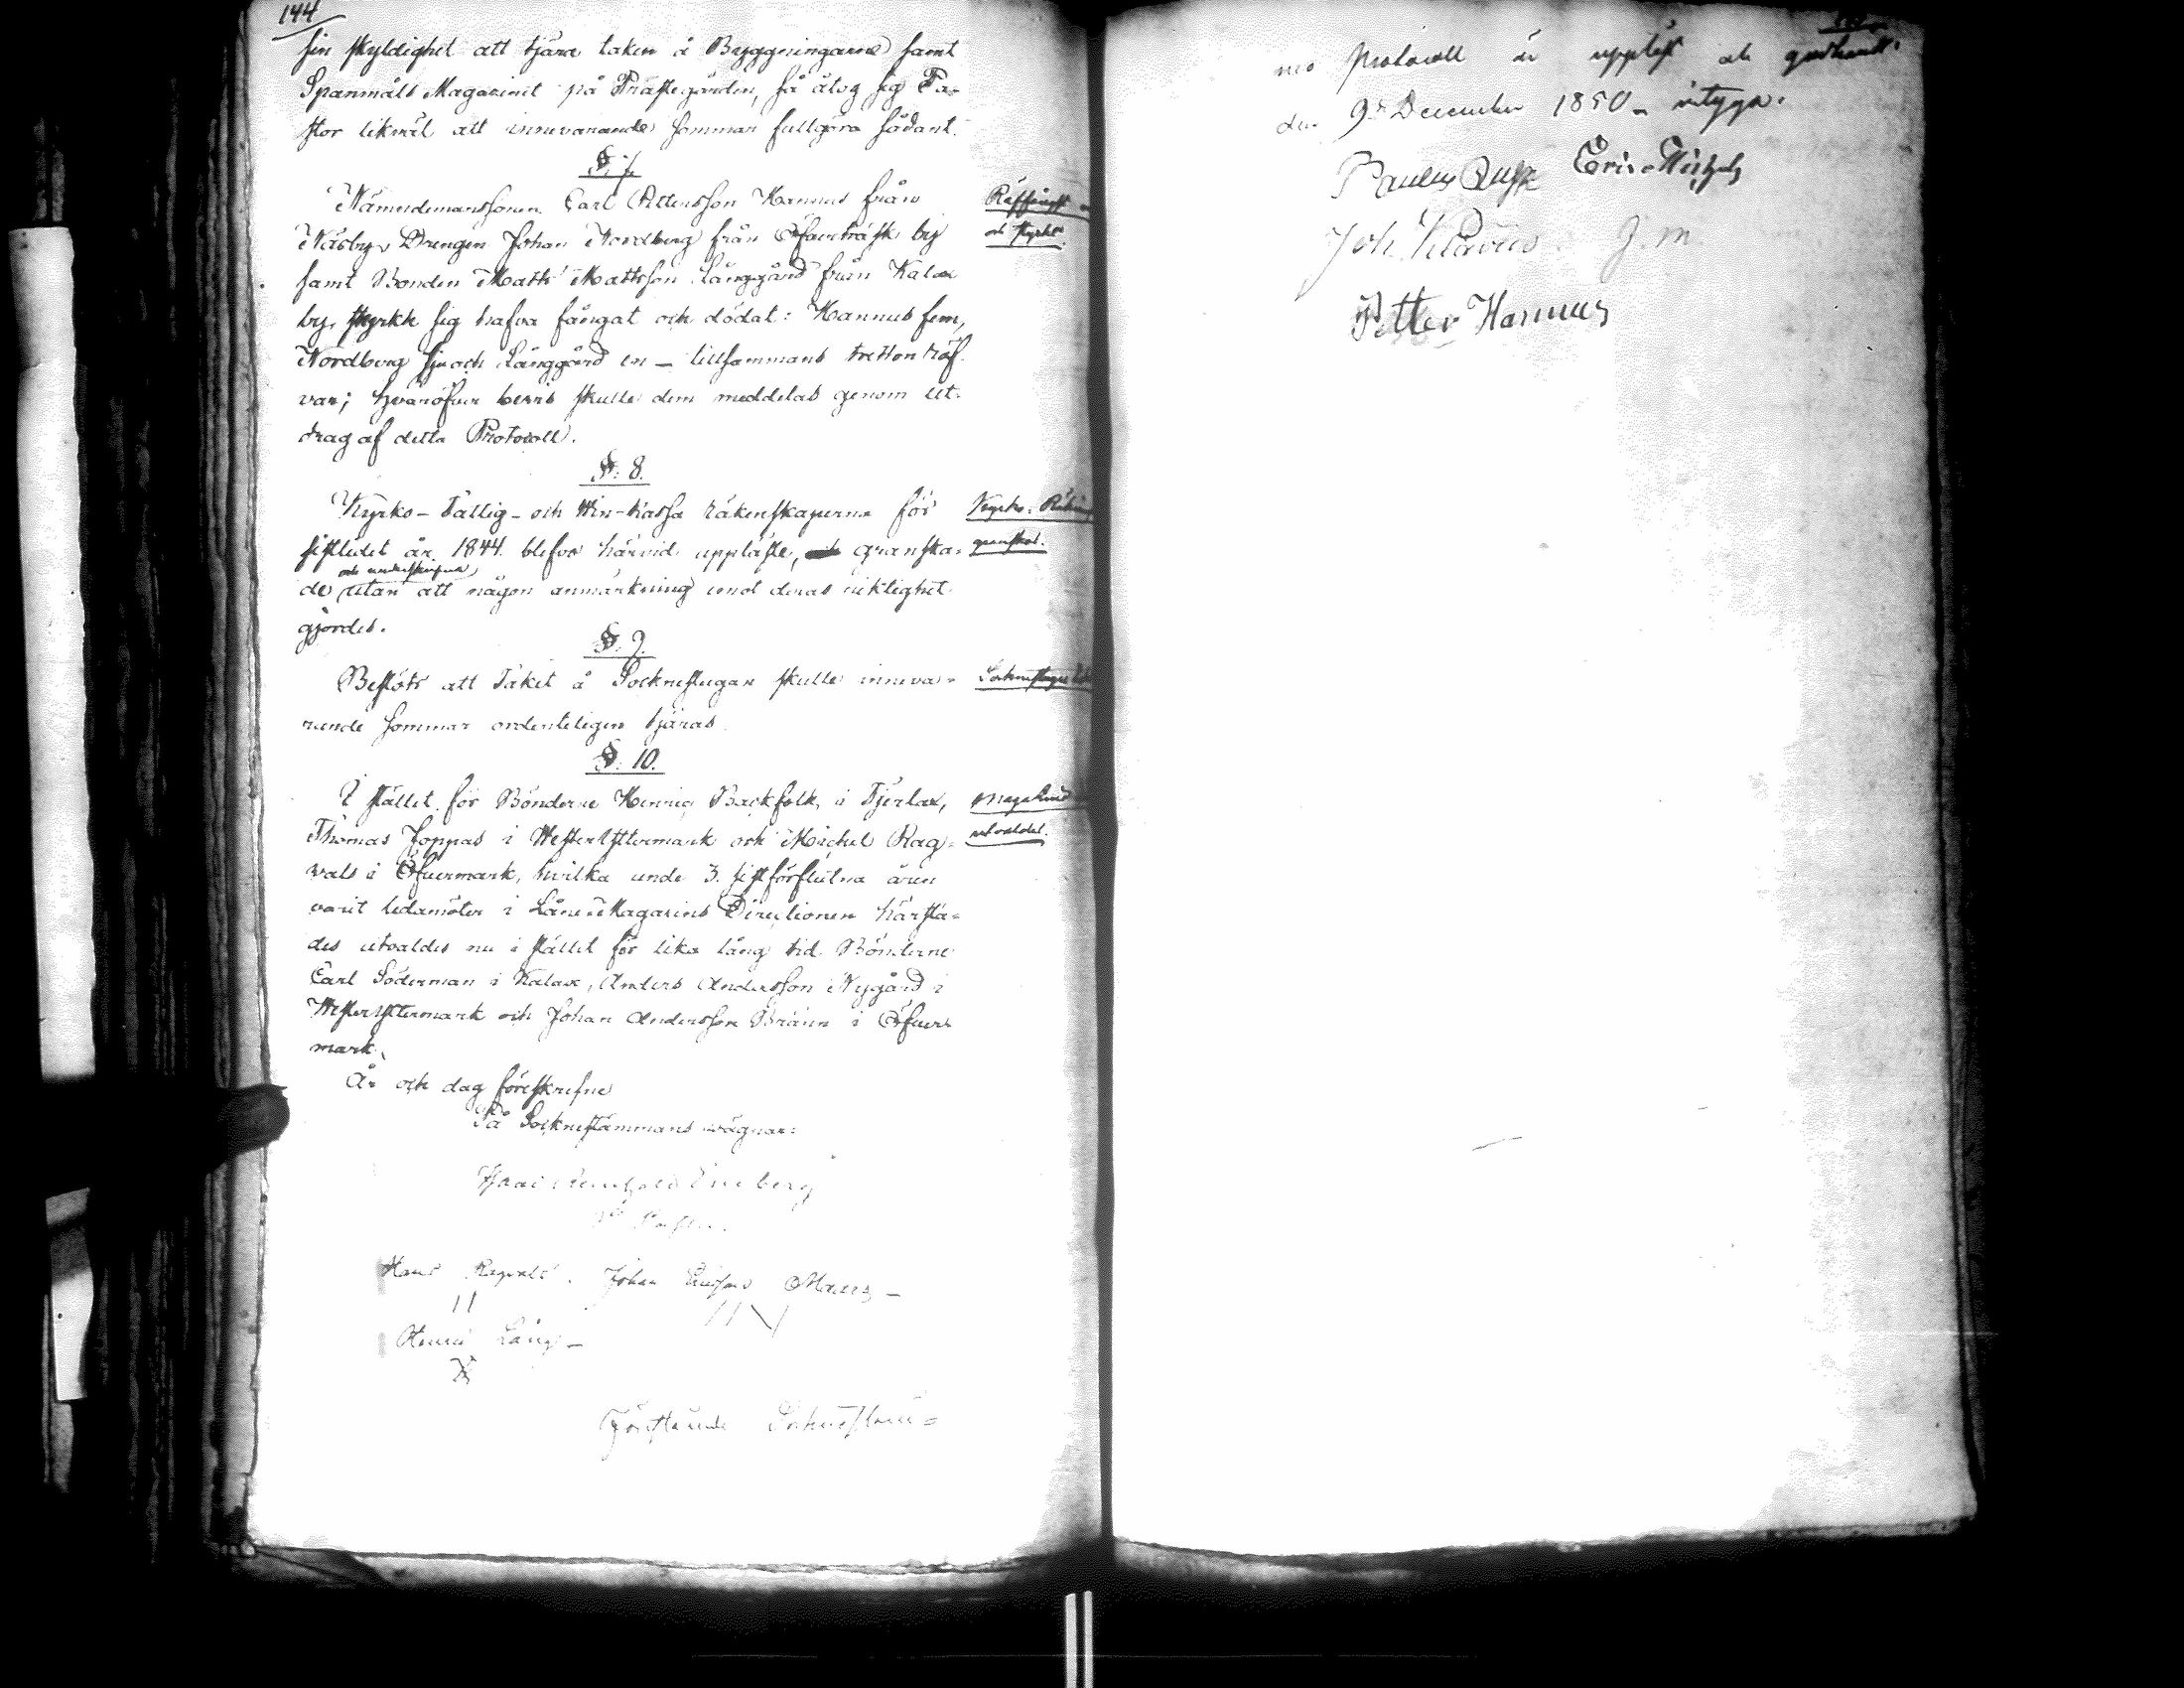 144
sin skyldighet att tjära taken å Byggningarne samt
Spanmåls Magasinet på Prästegården, så åtog sig Pa-
stor likväl att innevarande sommar fullgöra sådant.
§. 7.
Nämndemanssonen Carl Pettersson Hannus från
Näsby, Drengen Johan Nordberg från Öfverträsk by
samt Bonden Matts Mattsson Långgård från Kalax
by, styrkte sig hafva fångat och dödat: Hannus fem,
Nordberg sju och Långgård en – tillsammans tretton räf-
var; hvaröfver bevis skulle dem meddelas genom ut-
drag af detta Protocoll.
§. 8.
Kyrko- Fattig- och Win-kassa räkenskaperne för
sistledet år 1844 blefvo härvid uppläste, granska-
och underskrefna
de utan att någon anmärkning emot deras riktighet
gjordes.
§. 9.
Beslöts att Taket å Socknestugan skulle inneva-
rande sommar ordenteligen tjäras.
§. 10.
I stället för Bönderne Henric Backfolk i Tjerlax,
Thomas Joppas i WesterYttermark och Michel Rag-
vals i Öfvermark, hvilka unde 3. sistförflutna åren
varit ledamöter i LåneMagasins Directionen härstä-
des utvaldes nu i stället för lika lång tid Bönderne
Carl Söderman i Kalax, Anders Andersson Nygård i
WesterYttermark och Johan Andersson Bränn i Öfver-
mark.
År och dag föreskrefne
På Socknestämmans wägnar:
Hans Ragvals. Johan
Henric Lång –
Förestående Socknestäm=
Räffångst
och styrkt.
Kyrko-
granskat.
Socknestugu
Magasins
utvaldet.
mo Protocoll är uppläst och godkändt
den 9de December 1850 – intyga.
Joh. J. m.
Petter Hannus